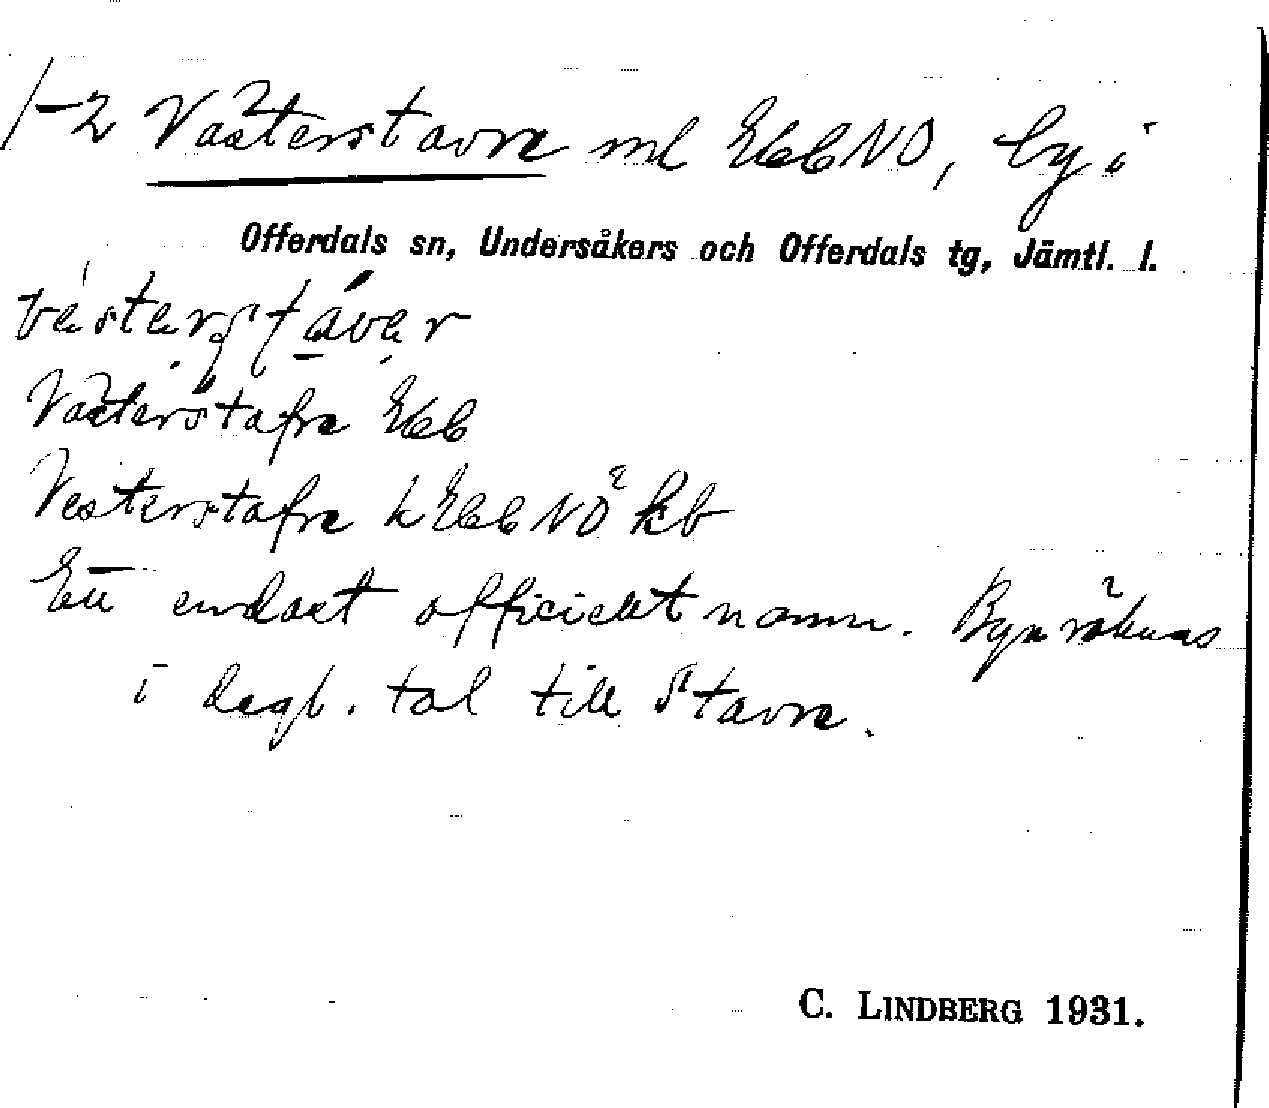 1-2 Västerstavre ml EbbNO, by i
Offerdals sn, Undersåkers och Offerdals tg, Jämtl. l.
västerstavar
Västerstafre Ebb
Vesterstafre kb
Ett endast officiellt namn. Byn räknas
i dagl. tal till Stavre.
C. LINDBERG 1931.